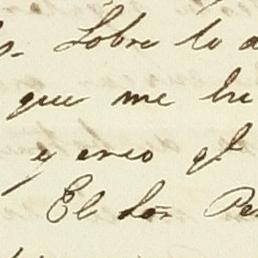 s. Sobre lo a
que me hu
y creo qᵉ
El Sor. Per